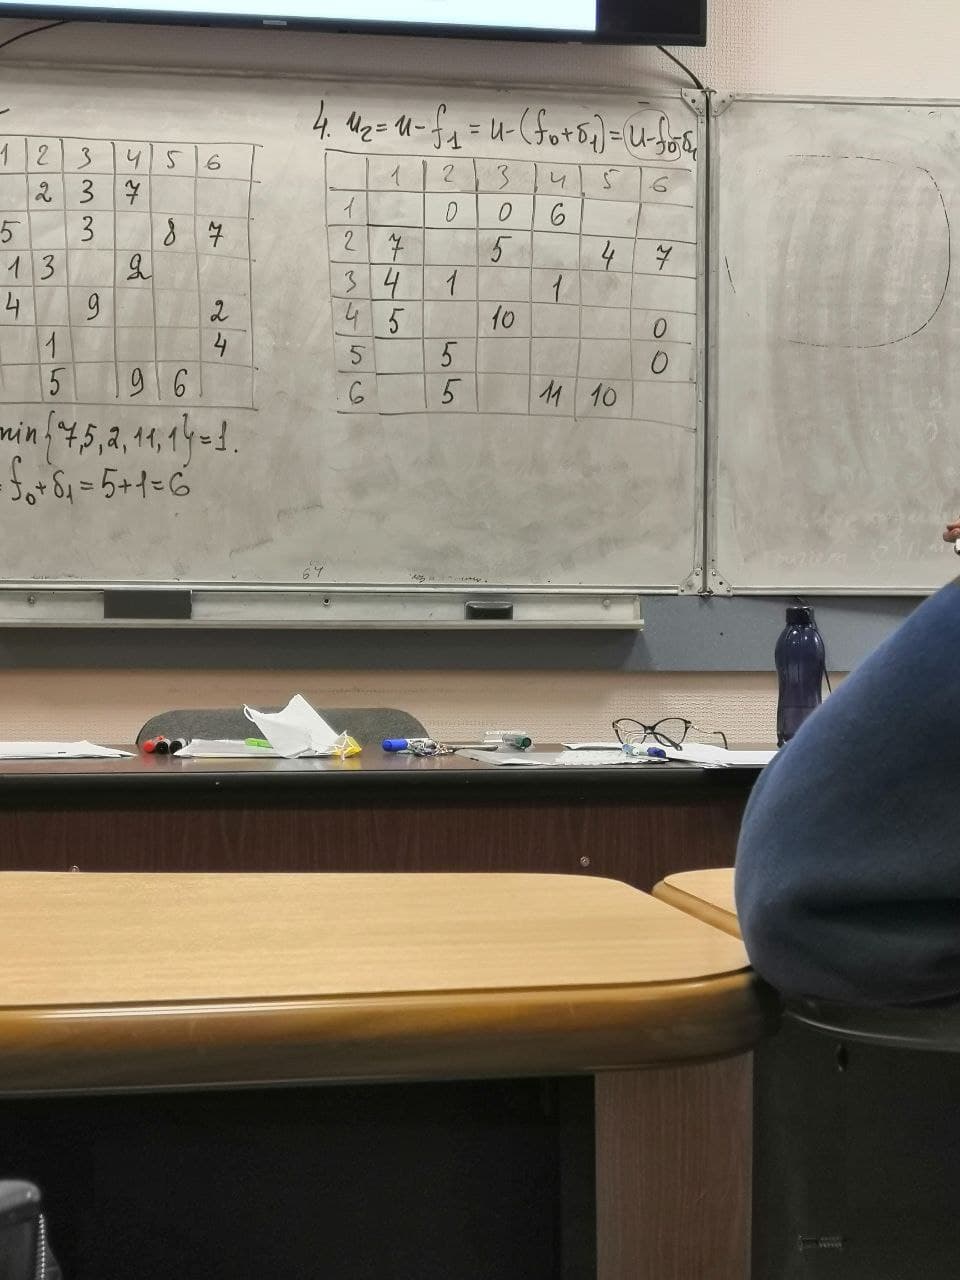 1 2 3 4 5 6
2 3 7
5 3 8 7
1 3 2
4 9 2
1 4
5 9 6
min{7,5,2,11,1}=1.
f₀+δ₁=5+1=6
4. u₂=u-f₁=u-(f₀+δ₁)=u-f₀-δ₁
1 2 3 4 5 6
1 0 0 6
2 7 5 4 7
3 4 1 1
4 5 10 0
5 5 0
6 5 11 10